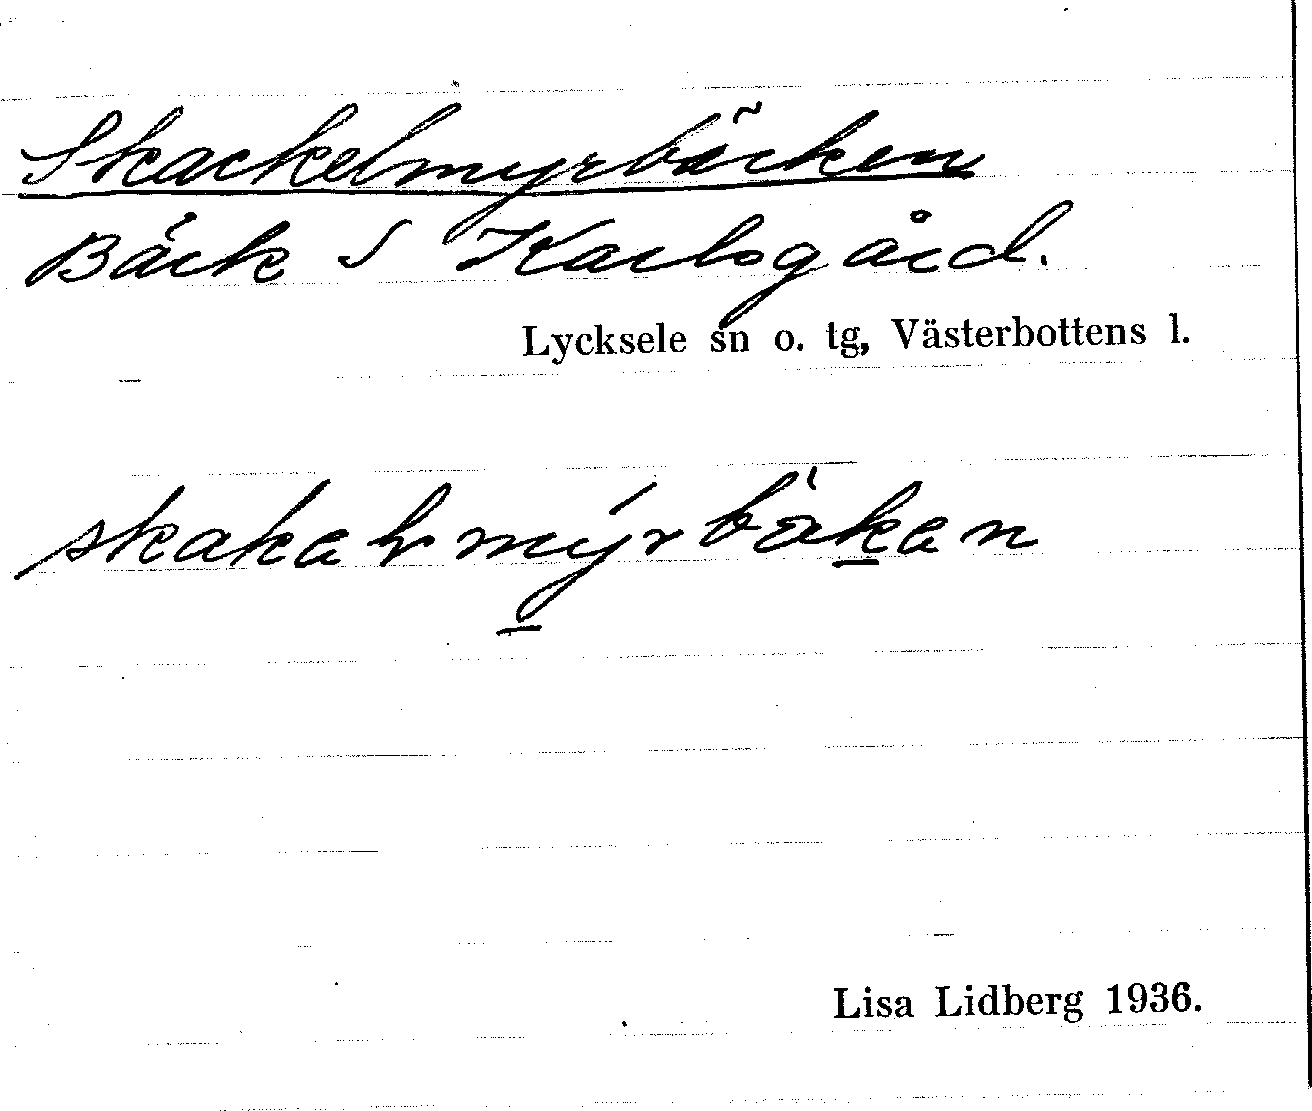 Skackelmyrbäcken
Bäck S Karlsgård.
Lycksele sn o. tg, Västerbottens l.
Lisa Lidberg 1936.